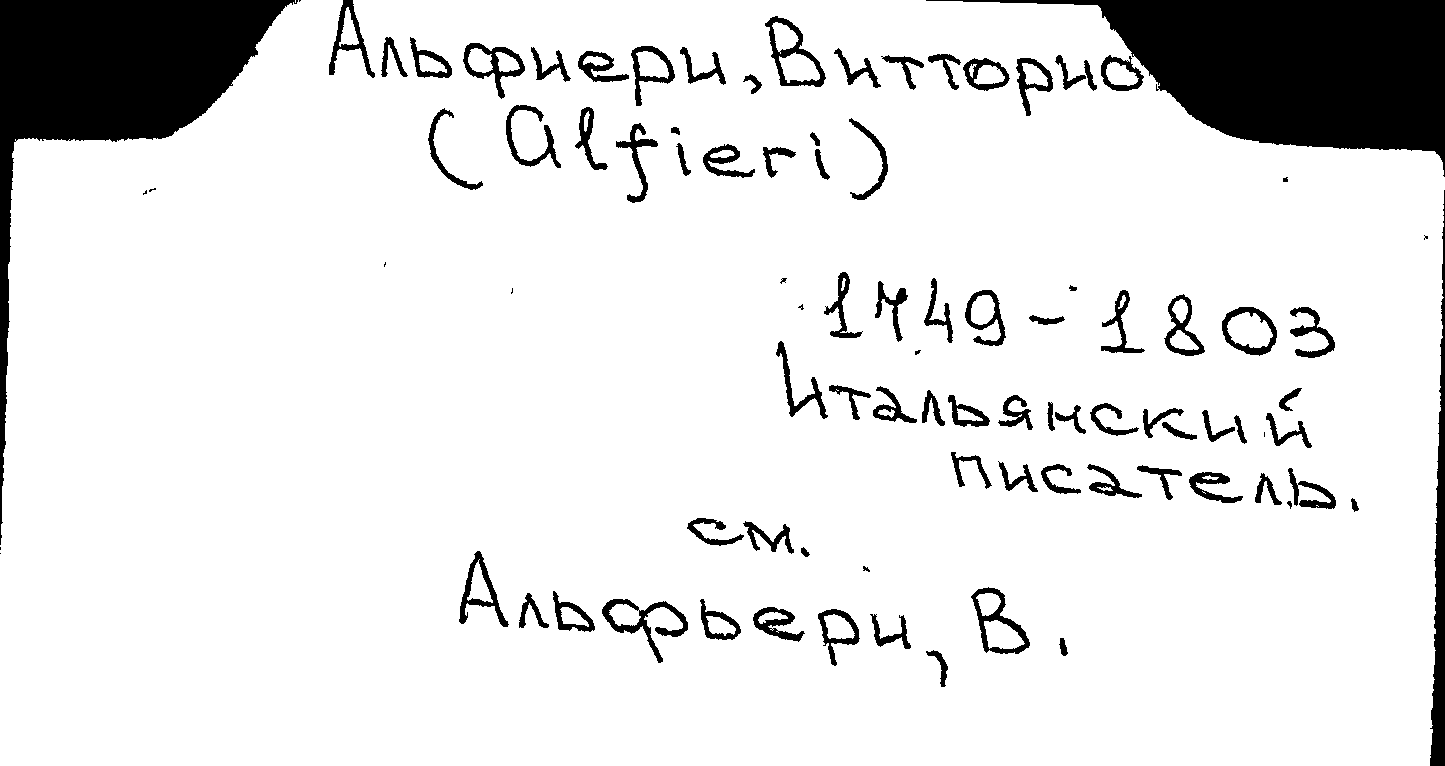 Альфиери, Витторио
(Alfieri)
1749-1803
Итальянский
писатель.
см.
Альфьери, В.